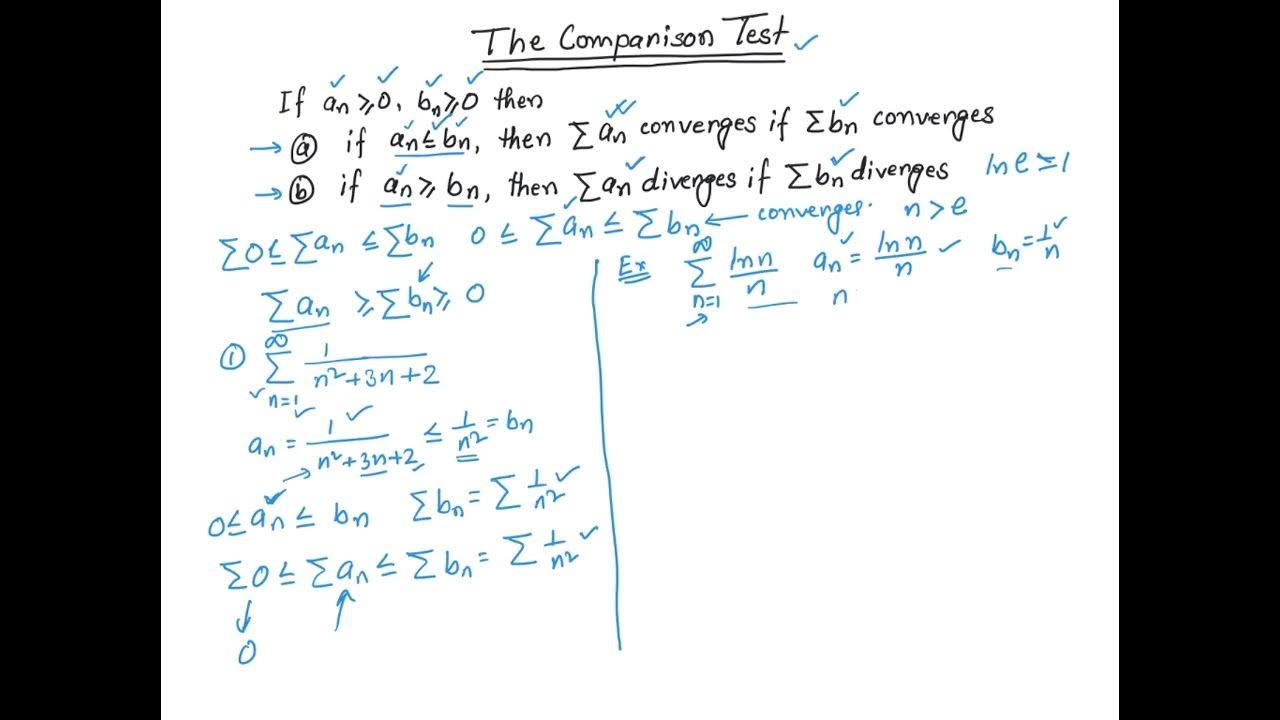 The Comparison Test ✓
If an ⩾ 0, bn ⩾ 0 then
→ ⓐ if an ≤ bn, then ∑ an converges if ∑ bn converges
→ ⓑ if an ⩾ bn, then ∑ an diverges if ∑ bn diverges
ln e ≥ 1
∑0 ≤ ∑an ≤ ∑bn 0 ≤ ∑an ≤ ∑bn ← converges. n > e
∑an ⩾ ∑bn ⩾ 0
① ∞∑n=1 1/(n²+3n+2)
an = 1/(n²+3n+2) ≤ 1/n² = bn
0 ≤ an ≤ bn ∑bn = ∑ 1/n² ✓
∑0 ≤ ∑an ≤ ∑bn = ∑ 1/n² ✓
↓ ↑
0
Ex ∞∑n=1 ln n/n an = ln n/n ✓ bn = 1/n ✓
→ n